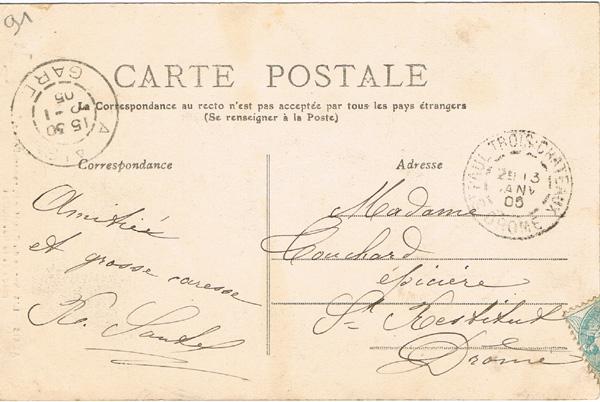 91
CARTE POSTALE
La Correspondance au recto n'est pas acceptée par tous les pays étrangers
(Se renseigner à la Poste)
GARE
15 30
05
Correspondance
Amitiés
et grosse caresse
Adresse
ST PAUL TROIS-CHATEAUX
13
JANV
05
DROME
Madame
épicière
St Restitut
Drôme